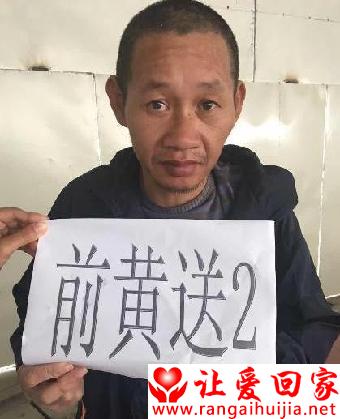 前黄送2
让爱回家
www.rangaihuijia.net